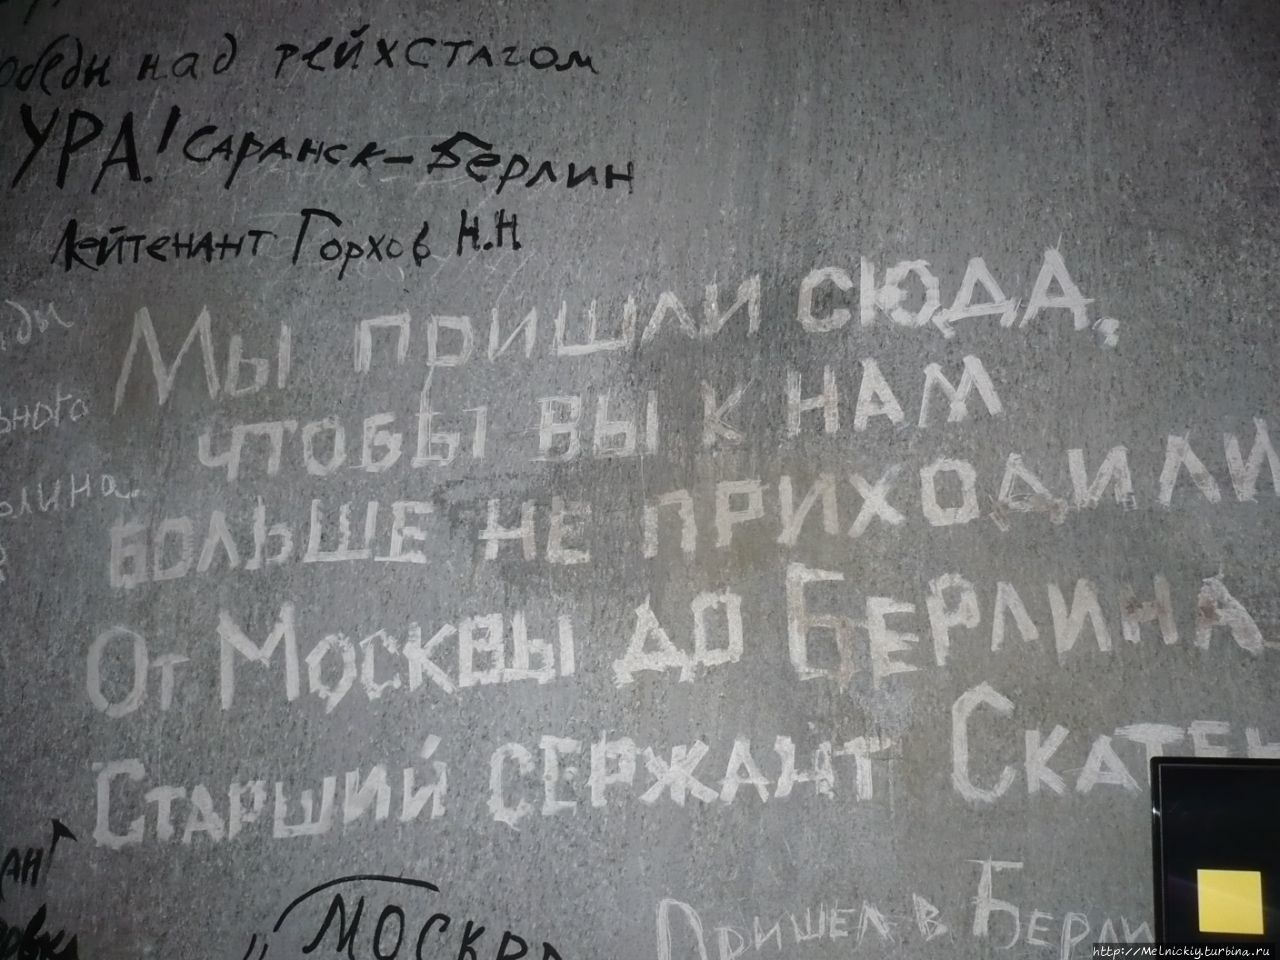 над рейхстагом
УРА! Саранск-Берлин
Лейтенант Горхов Н.Н.
Мы пришли сюда,
чтобы вы к нам
больше не приходили
От Москвы до Берлина
Старший сержант Скатен
Москва
Пришел в Берли
http://Melnickiy.turbina.ru